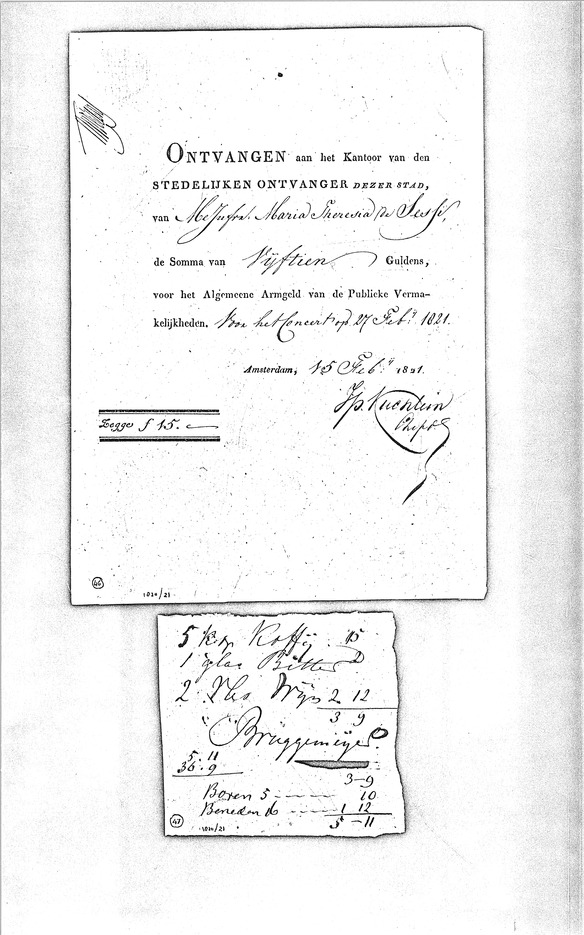 ONTVANGEN aan het Kantoor van den
STEDELIJKEN ONTVANGER DEZER STAD,
van Mejufvr. Maria Theresia de Sessi,
de Somma van Vijftien Guldens,
voor het Algemeene Armgeld van de Publieke Verma-
kelijkheden. Voor het Concert op 27 Feb. 1821.
Amsterdam, 15 Feb. 1821.
Zegge f 15.
46
1020/21
5 Koffy 15
1 glas Bitter 2
2 Wijn 2 12
3 9
Bruggemeyer
5.11
36.9
3-9
Boven 5 10
Beneden 16 1 12
5-11
47
1020/21